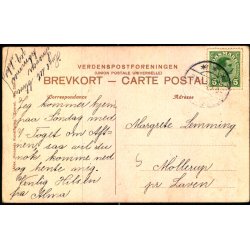 VERDENSPOSTFORENINGEN
(UNION POSTALE UNIVERSELLE)
BREVKORT – CARTE POSTALE
Correspondance
Adresse
Jeg kommer hjem
paa Søndag med
7 Toget om Aft-
nen, saa vil du
nok komme ned
og hente mig.
Venlig Hilsen
fra Alma
Margrete Lemming
Möllerup
pr Laven